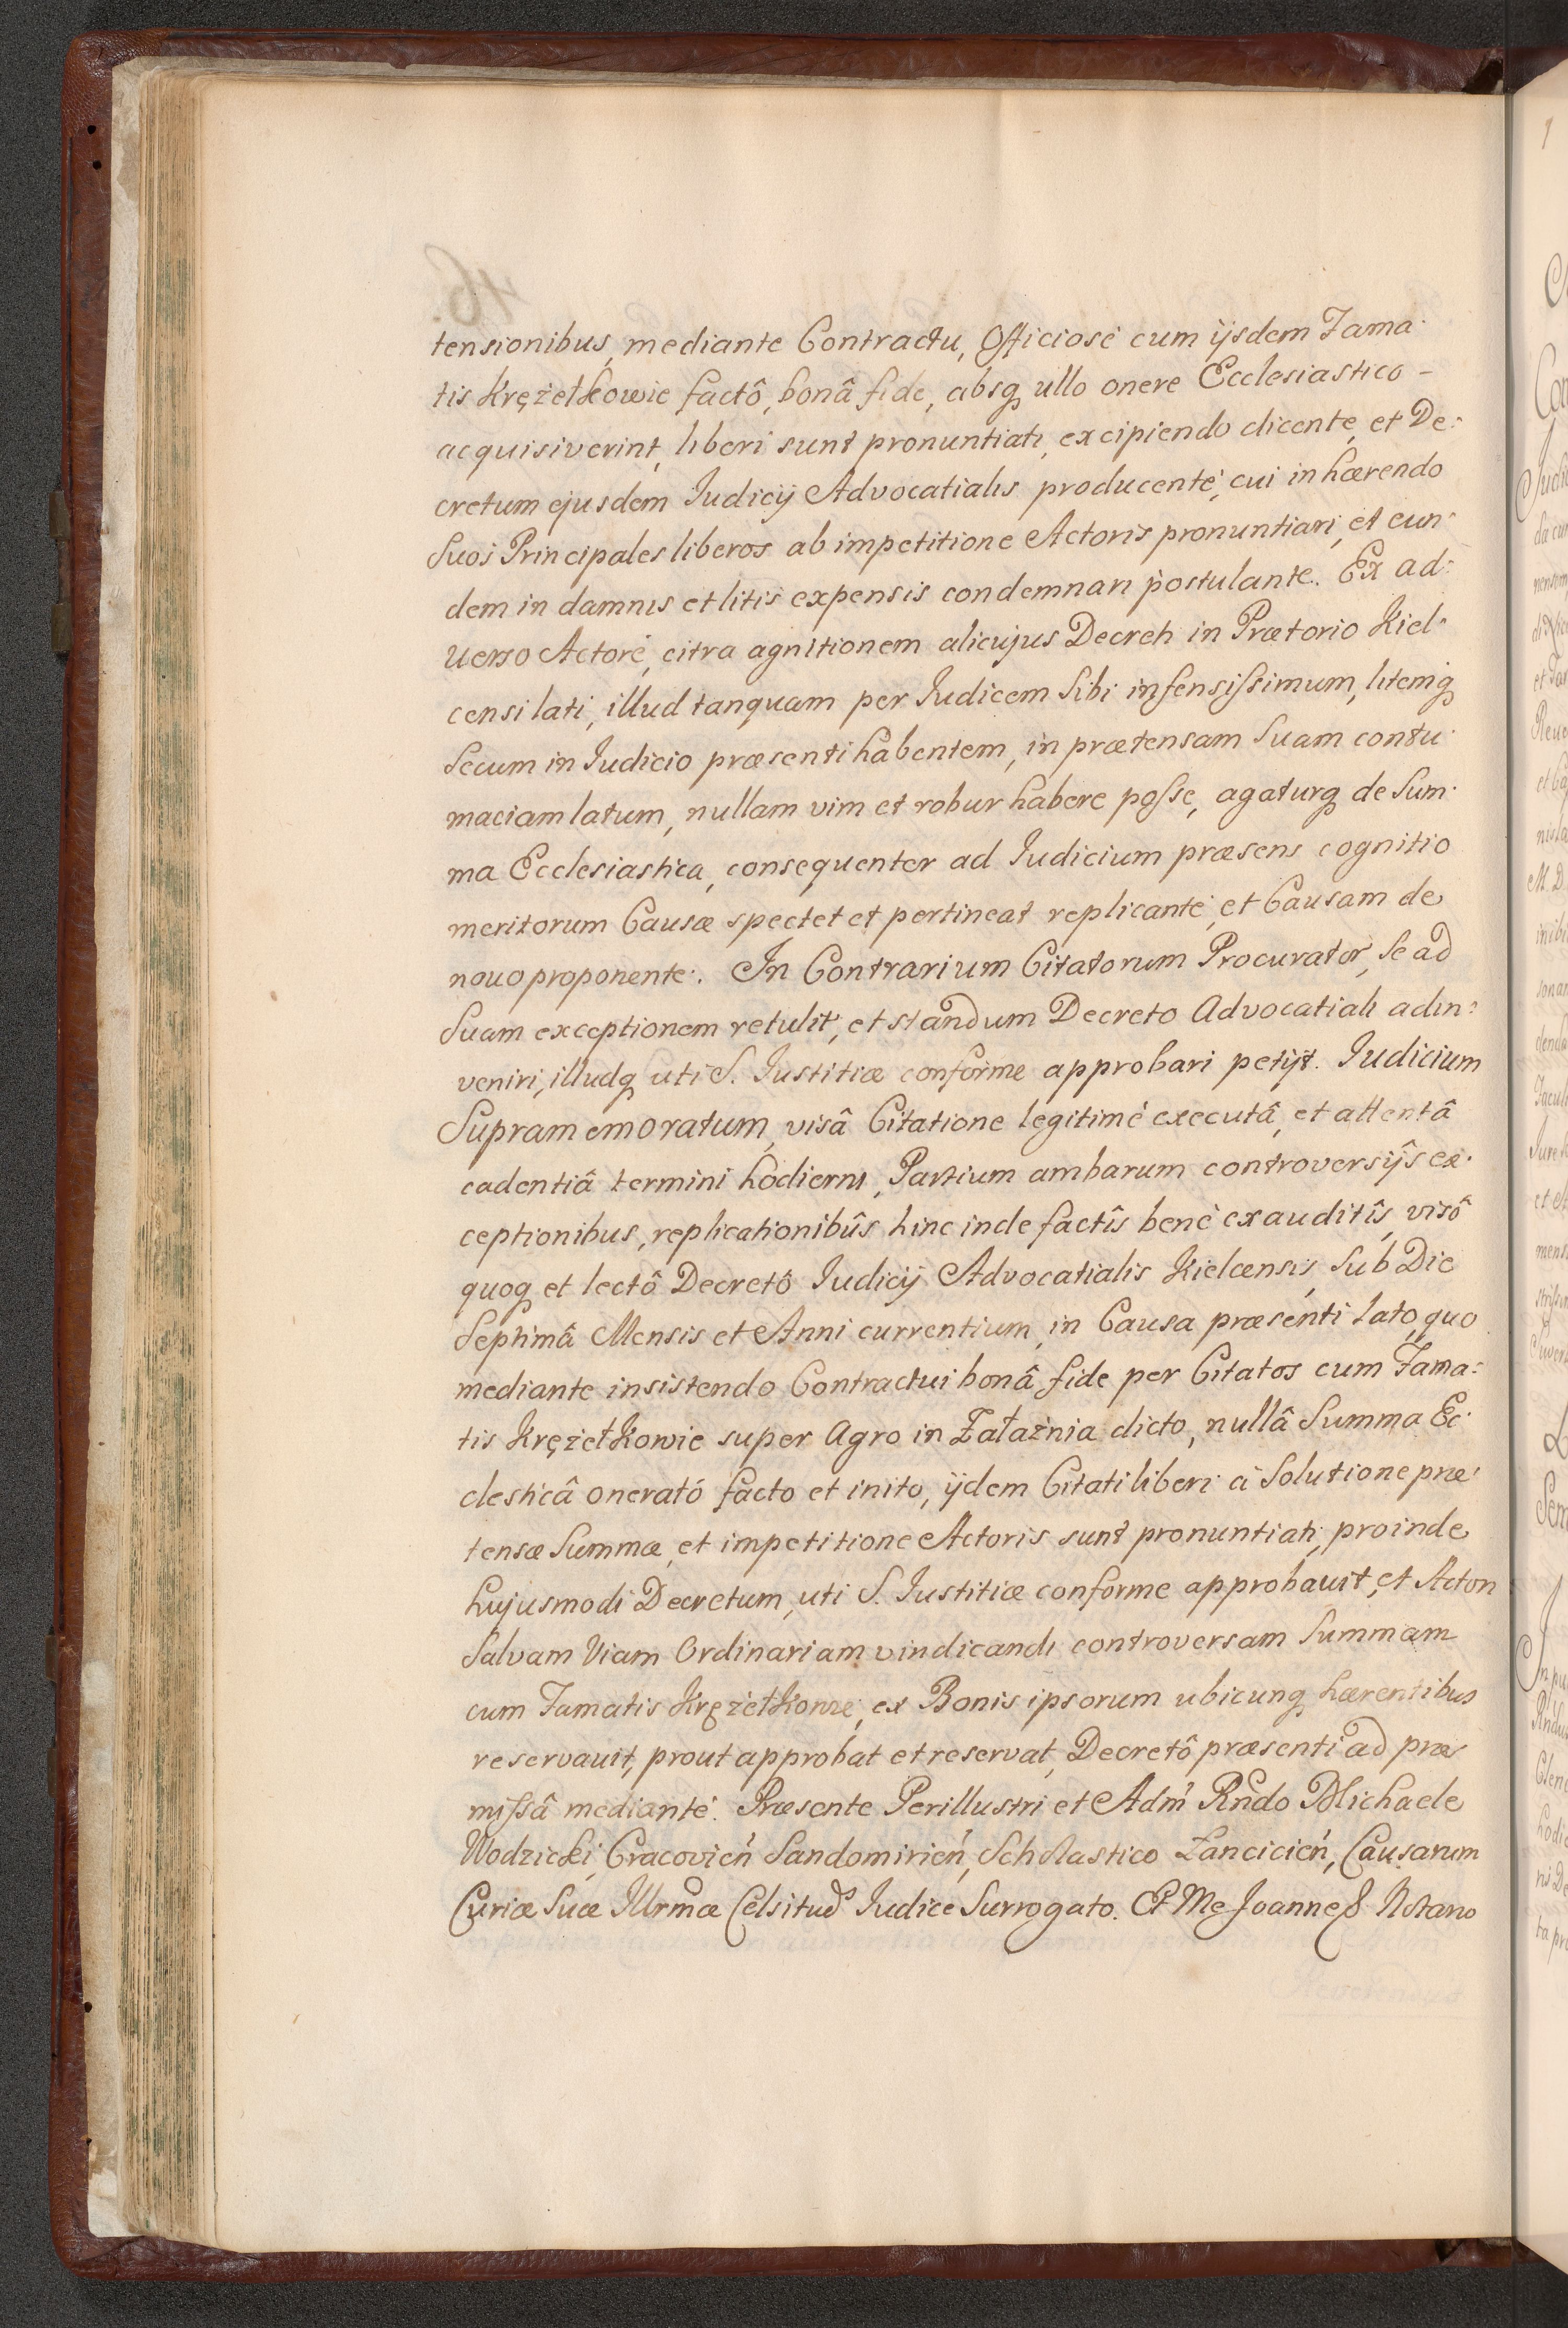 tensionibus, mediante Contractu, Officiosé cum ijsdem Fama-
tis Krężełkowie factô, bonâ fide, absq ullo onere Ecclesiastico -
acquisiverint, liberi sunt pronuntiati, excipiendo dicente, et De-
cretum ejusdem Iudicij Advocatialis producente, cui inhærendo
Suos Principales liberos ab impetitione Actoris pronuntiari, et eun-
dem in damnis et litis expensis condemnari postulante. Ex ad-
uerso Actore, citra agnitionem alicujus Decreti in Prætorio Kiel-
censi lati, illud tanquam per Iudicem Sibi infensissimum, litemq
Secum in Iudicio præsenti habentem, in prætensam Suam contu-
maciam latum, nullam vim et robur habere posse, agaturq de Sum-
ma Ecclesiastica, consequenter ad Iudicium præsens cognitio
meritorum Causæ spectet et pertineat replicante, et Causam de
nouo proponente. In Contrarium Citatorum Procurator, Se ad
Suam exceptionem retulit, et standum Decreto Advocatiali adin-
veniri, illudq uti S. Iustitiæ conforme approbari petijt. Iudicium
Supramemoratum, visâ Citatione legitimé executâ, et attentâ
cadentiâ termini hodierni, Partium ambarum controversijs ex-
ceptionibus, replicationibûs hinc inde factîs bené exauditîs, visô
quoq et lectô Decretô Iudicij Advocatialis Kielcensis, Sub Die
Septimâ Mensis et Anni currentium, in Causa præsenti lato, quo
mediante insistendo Contractui bonâ fide per Citatos cum Fama-
tis Krężełkowie super Agro in Załaźnia dicto, nullâ Summa Ec-
clesticâ oneratô facto et inito, ijdem Citati liberi á Solutione præ-
tensæ Summæ, et impetitione Actoris sunt pronuntiati, proinde
hujusmodi Decretum, uti S. Iustitiæ conforme approbauit, et Actori
Salvam Viam Ordinariam vindicandi controversam Summam
cum Famatis Krężełkowie, ex Bonis ipsorum ubicunq hærentibus
reservauit, prout approbat et reservat, Decretô præsenti ad præ-
missâ mediante. Præsente Perillustri et Adm Rndo D. Michaele
Wodzicki, Cracovień Sandomirień, Scholastico Lancicień, Causarum
Curiæ Suæ Illrmæ Celsituds Iudice Surrogato. Et Me Joanne S. Notario